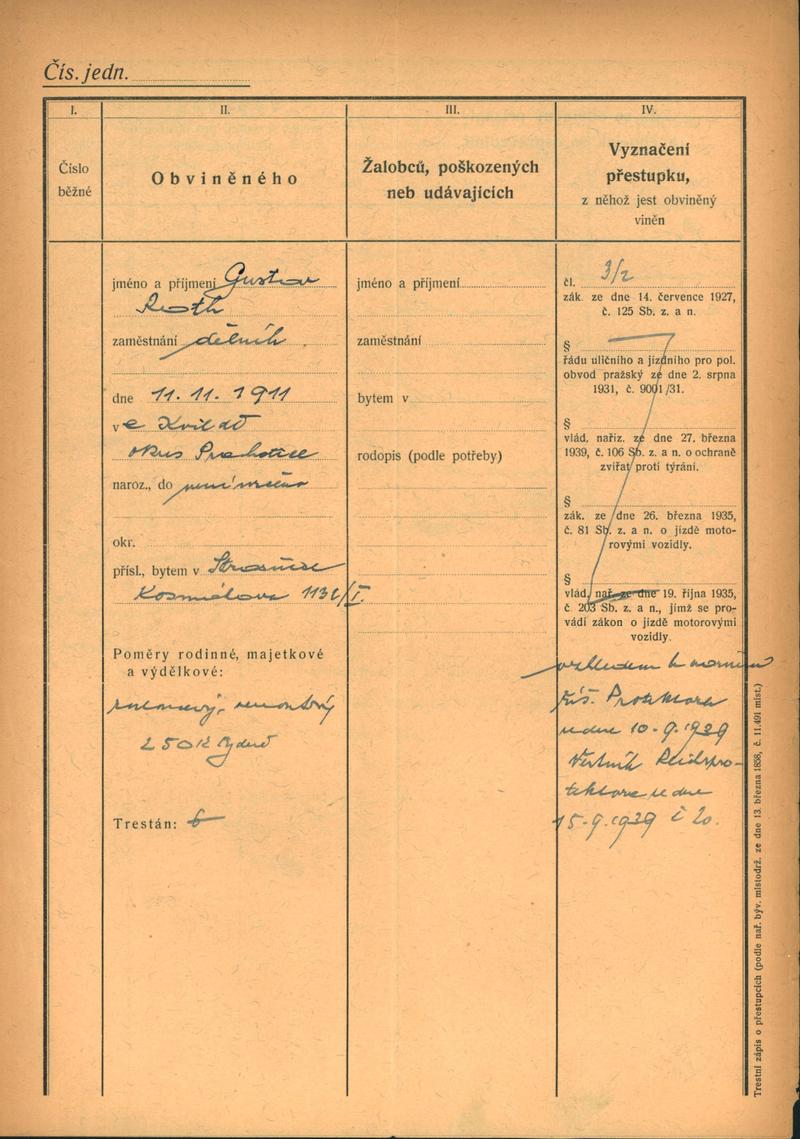 Čís. jedn.
I.
Číslo
běžné
II.
Obviněného
III.
Žalobců, poškozených
neb udávajících
IV.
Vyznačení
přestupku,
z něhož jest obviněný
viněn
jméno a příjmení Gustav
Roth
zaměstnání dělník
dne 11. 11. 1911
ve Kvildě
okres Prachatice
naroz., do není
okr.
přísl., bytem v Strašnice
1132/I.
Poměry rodinné, majetkové
a výdělkové:
250 K týdně
Trestán:
jméno a příjmení
zaměstnání
bytem v
rodopis (podle potřeby)
čl. 3/2
zák. ze dne 14. července 1927,
č. 125 Sb. z. a n.
§
řádu uličního a jízdního pro pol.
obvod pražský ze dne 2. srpna
1931, č. 9001/31.
§
vlád. naříz. ze dne 27. března
1939, č. 106 Sb. z. a n. o ochraně
zvířat proti týrání.
§
zák. ze dne 26. března 1935,
č. 81 Sb. z. a n. o jízdě moto-
rovými vozidly.
§
vlád. nař. ze dne 19. října 1935,
č. 203 Sb. z. a n., jímž se pro-
vádí zákon o jízdě motorovými
vozidly.
vzhledem k
říš. Protektora
ze dne 10. 9. 1939
Věstník Reichspro-
tektora ze dne
15. 9. 1939 č 20.
Trestní zápis o přestupcích (podle nař. býv. místodrž. ze dne 13. března 1858, č. 11.491 míst.)